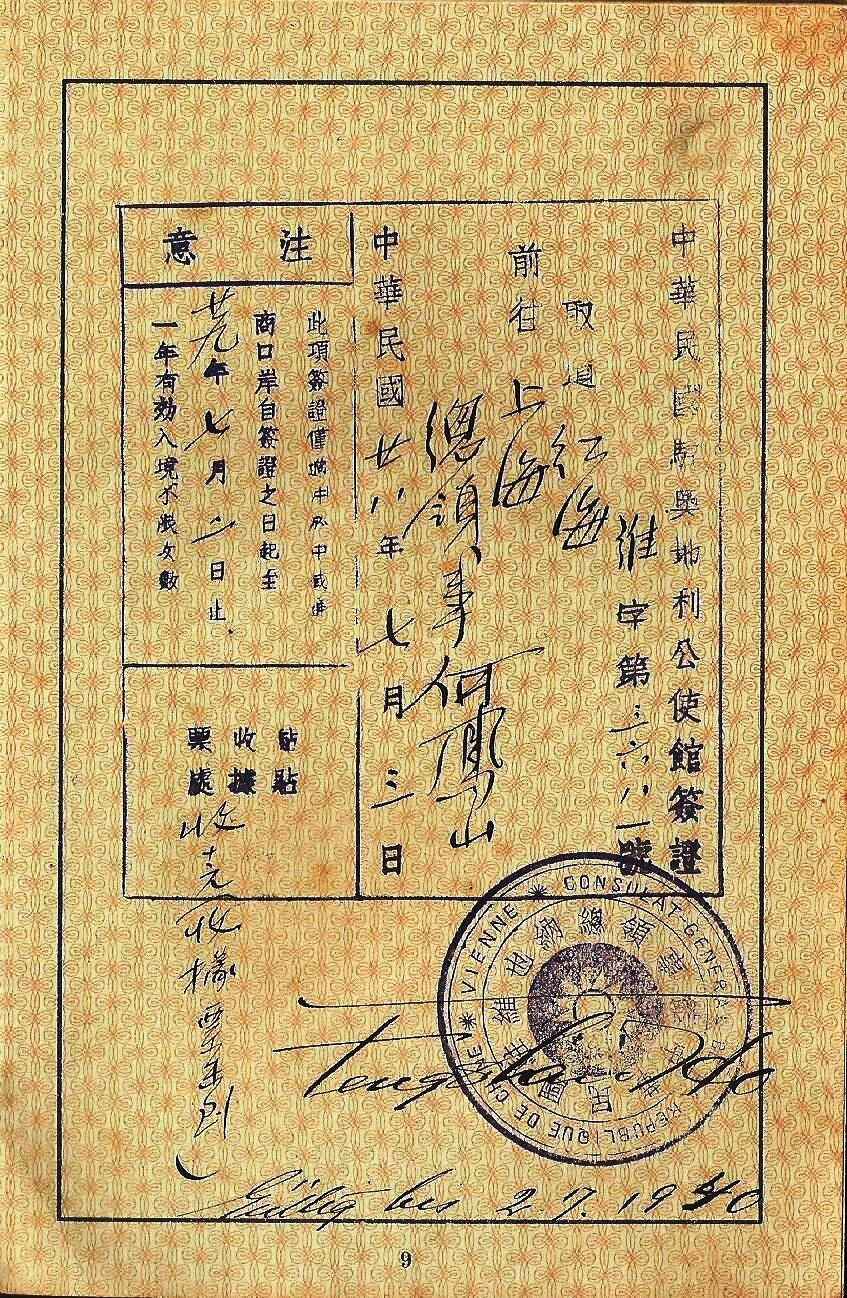 中華民國駐奧地利公使館簽證
維字第三六八一號
取道 紅海
前往 上海
總領事何鳳山
中華民國廿八年七月三日
注意
此項簽證僅 中國通
商口岸自簽證之日起至
廿九年七月二日止
一年有効入境不限次數
收據
票處
CONSULAT-GENERAL REPUBLIQUE DE CHINE VIENNE
民國駐維也納總領事
Feng Shan Ho
Gültig bis 2.7.1940
9